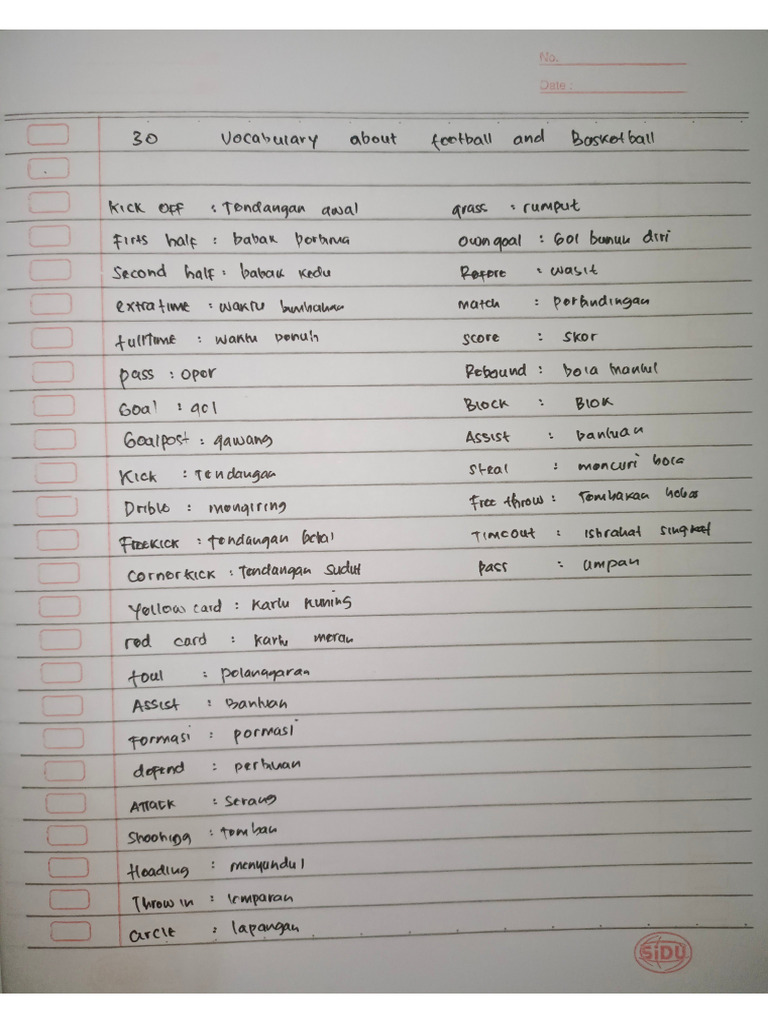 No.
Date :
30 Vocabulary about football and Basketball
Kick off : Tendangan awal
Firts half : babak pertama
Second half : babak kedu
extra time : waktu
fulltime : waktu penuh
pass : oper
Goal : gol
Goalpost : gawang
Kick : Tendangan
Drible : mengiring
Freekick : Tendangan bebas
Cornerkick : Tendangan sudut
Yellow card : Kartu Kuning
red card : kartu merah
foul : pelanggaran
Assist : Bantuan
Formasi : pormasi
defend :
Attack : Serang
Shooting : tembak
Heading : menyundul
Throw in : lemparan
circle : lapangan
grass : rumput
Own goal : Gol bunuh diri
Refere : wasit
match : pertandingan
score : skor
Rebound : bola mantul
Block : Blok
Assist : bantuan
Steal : mencuri bola
Free throw : Tembakan bebas
Timeout : istirahat
pass : umpan
SiDU